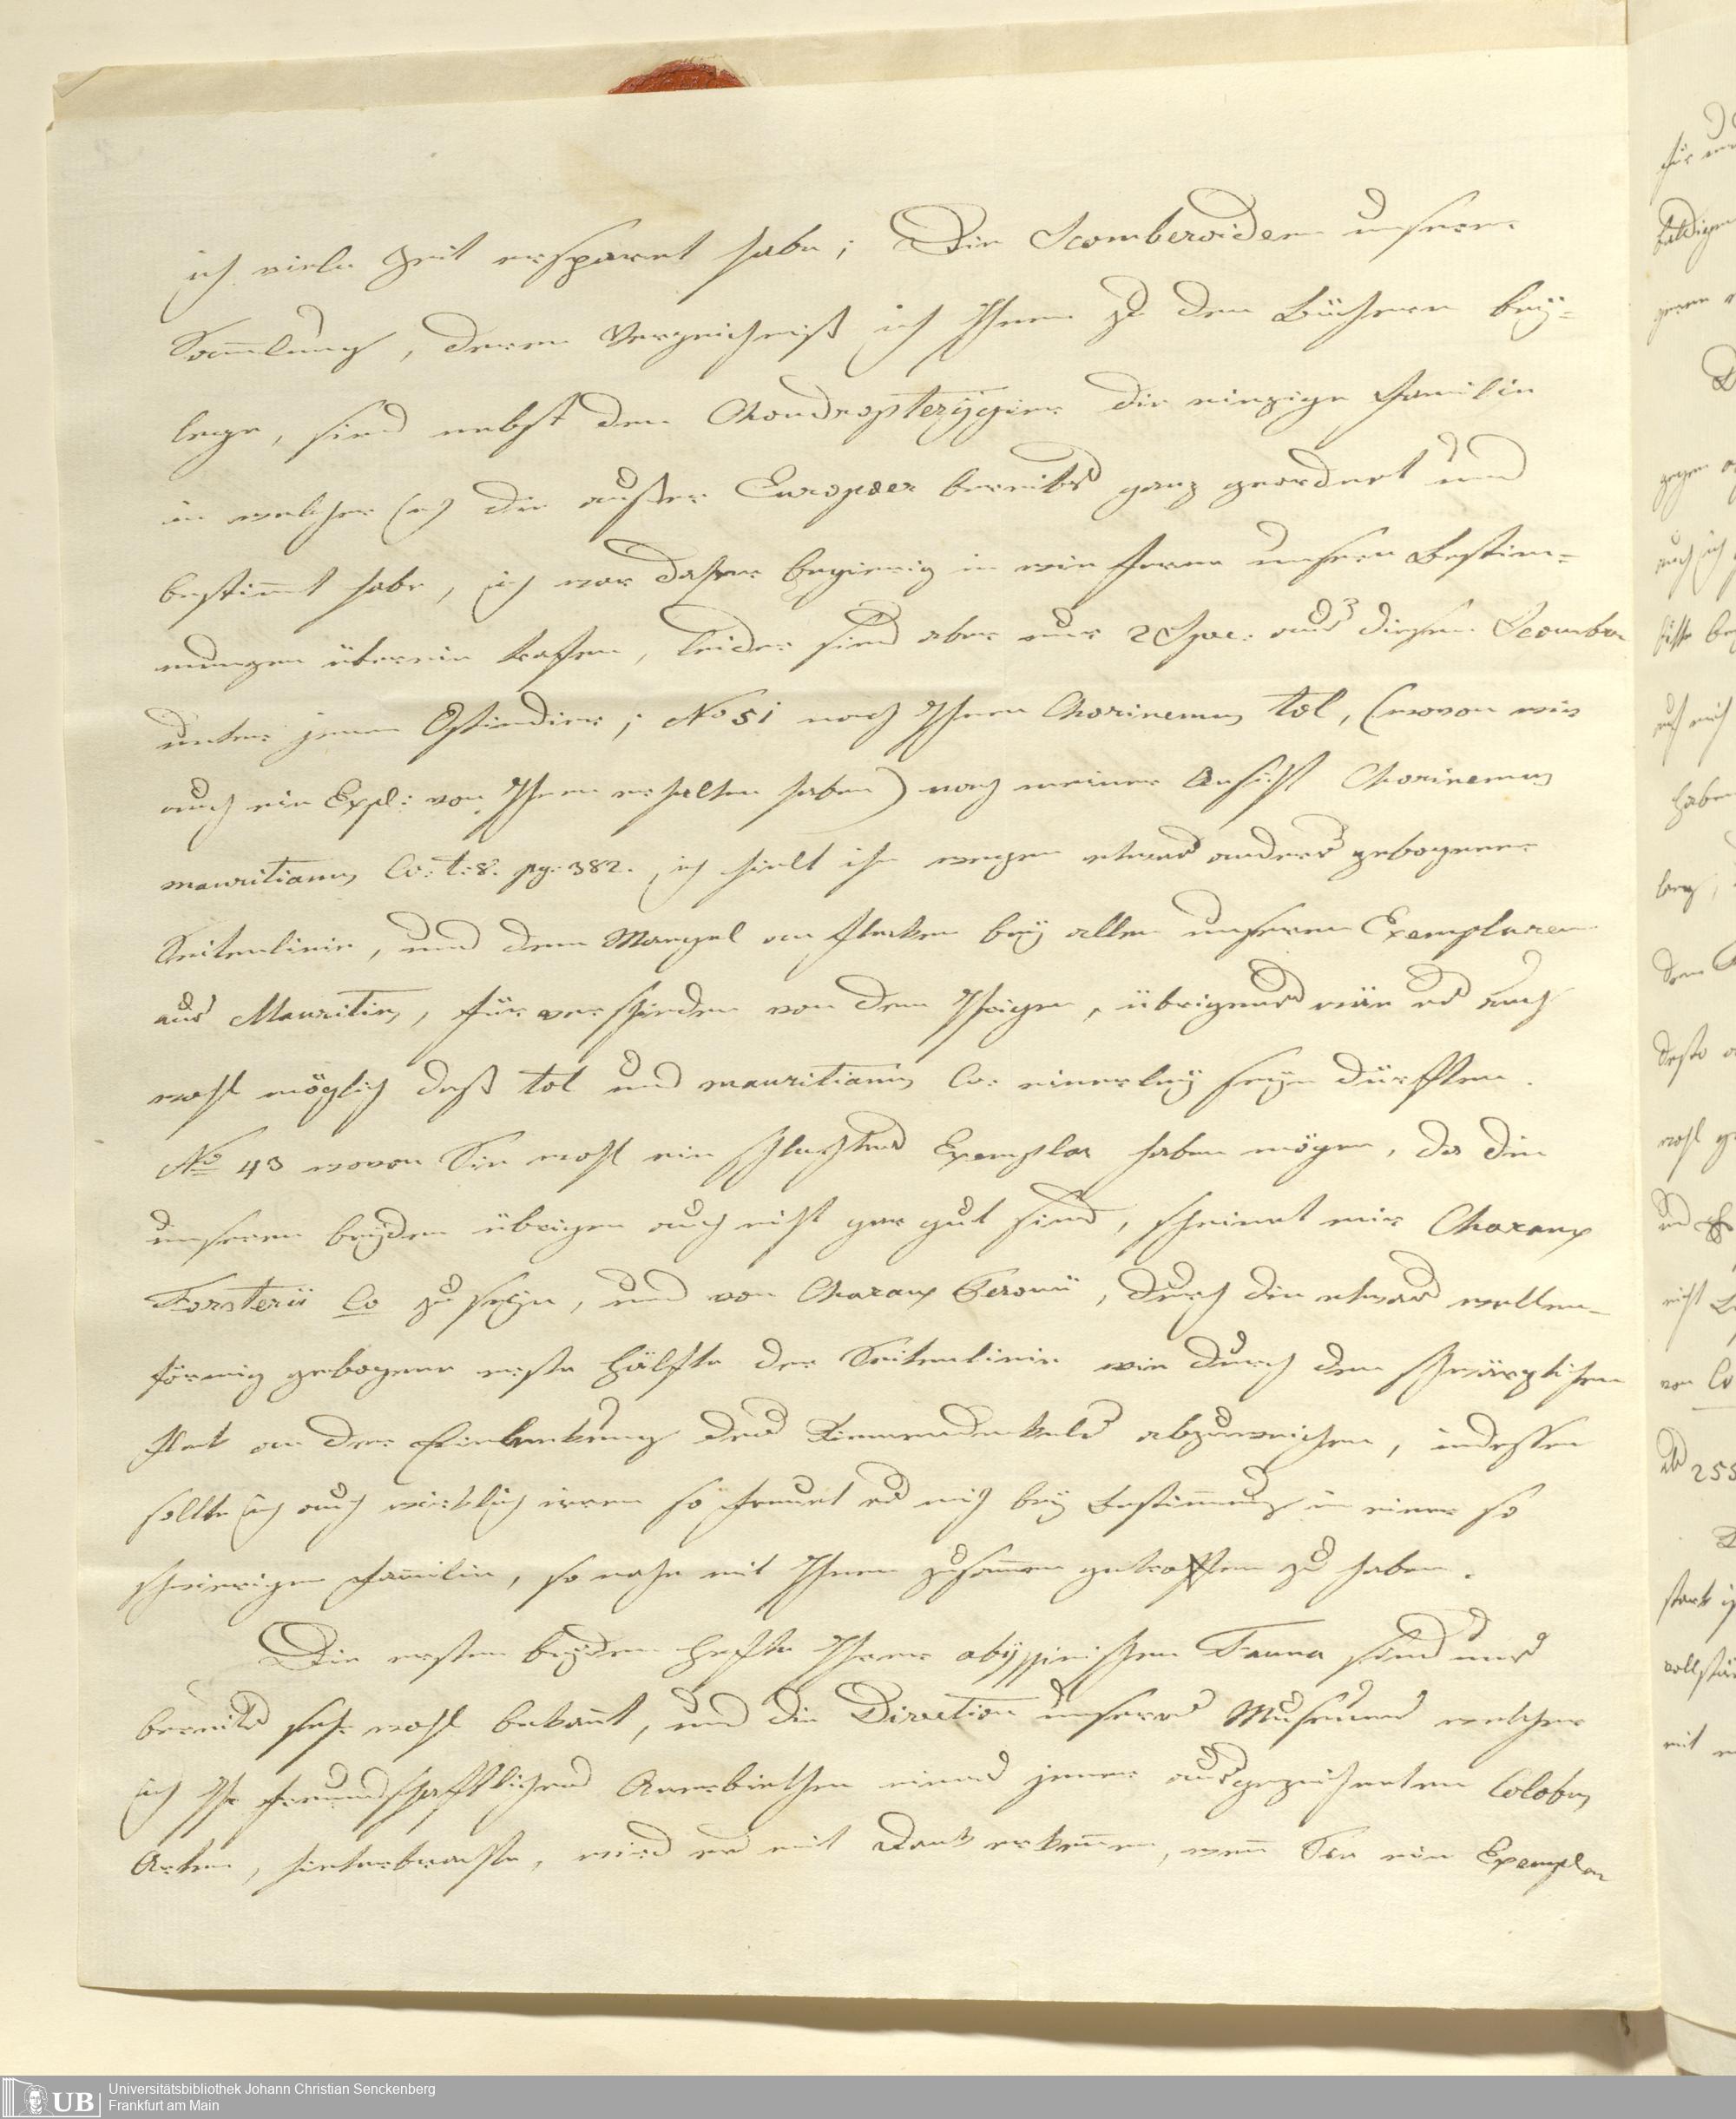 ich viele Zeit ersparet habe; Die Scomberoiden unserer
Sam̄lung, deren Verzeichniß ich Ihnen zu den Büchern bey=
lege, sind nebst den Chondropterÿgier die einzige Familie
in welcher ich die außer Europäer bereits ganz geordnet und
bestim̄t habe, ich war daher begierig in wie ferne unsere Bestim=
mungen überein trafen, leider sind aber nur 2 Spec: aus diesen Scomber
unter jenen Ostindier; No 51 nach Ihnen Chorinemus tol, (wovon wir
auch ein Expl: von Ihnen erhalten haben) nach meiner Ansicht Chorinemus
mauritianus Cv. t: 8. pg: 382. ich hielt ihn wegen etwas anders gebogener
Seitenlinie, und dem Mangel an Flecken beÿ allen unseren Exemplaren
aus Mauritius, für verschieden von dem Ihrigen, übrigens wär es auch
wohl möglich daß tol und mauritianus Cv: einerleÿ seÿn dürften.
No 43 wovon Sie wohl ein schlechtes Exemplar haben mögen, da die
unseren beÿden übrigen auch nicht gar gut sind, scheinet mir Charanx
Forsterii Cv zu seÿn, und von Charanx Peronii, durch die etwas wellen-
förmig gebogene erste Hälfte der Seitenlinie wie durch den schwärzlichen
Flek an der Einlenkung des Kiemendekels abzuweichen, indessen
sollte ich auch wirklich irren so freuet es mich beÿ Bestim̄ung in einer so
schwierigen Familie, so nahe mit Ihnen zusam̄en getroffen zu haben.
Die ersten beÿden Hefte Ihrer abÿssinischen Fauna sind uns
bereits sehr wohl bekan̄t, und die Direction unseres Museums welcher
ich Ihr freundschaftliches Anerbiethen eines jener ausgezeichneten Colobus
Arten, hinterbrachte, wird es mit Dank erken̄en, wen̄ Sie ein Exemplar
Universitätsbibliothek Johann Christian Senckenberg
Frankfurt am Main
UB